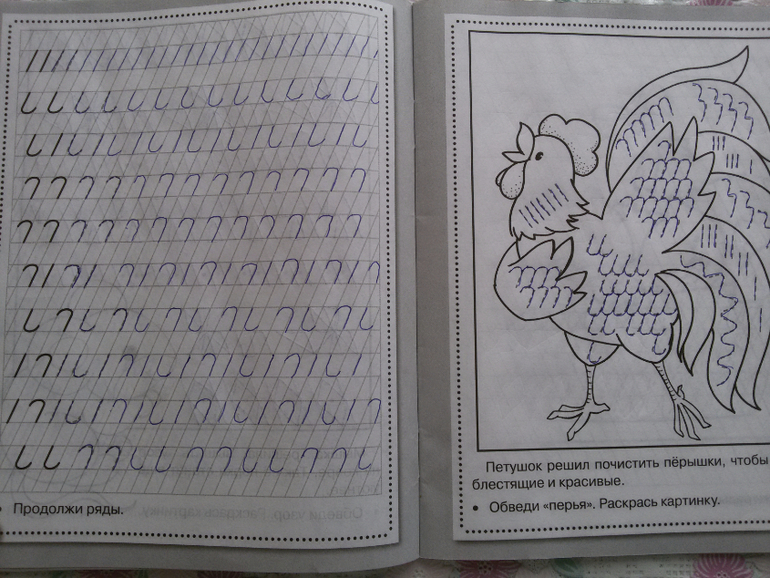 Продолжи ряды.
Петушок решил почистить пёрышки, чтобы
блестящие и красивые.
Обведи «перья». Раскрась картинку.